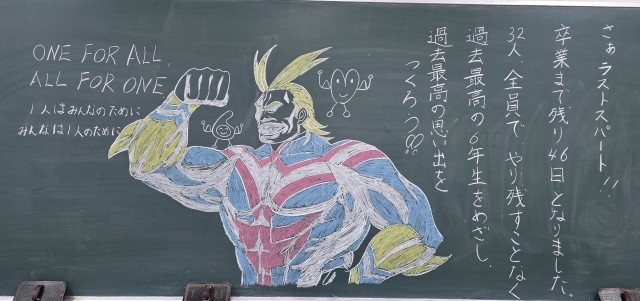 ONE FOR ALL,
ALL FOR ONE
1人はみんなのために
みんなは1人のために
さぁ ラストスパート!!
卒業まで残り46日となりました。
32人、全員で やり残すことなく
過去最高の6年生をめざし、
過去最高の思い出を
つくろう!!